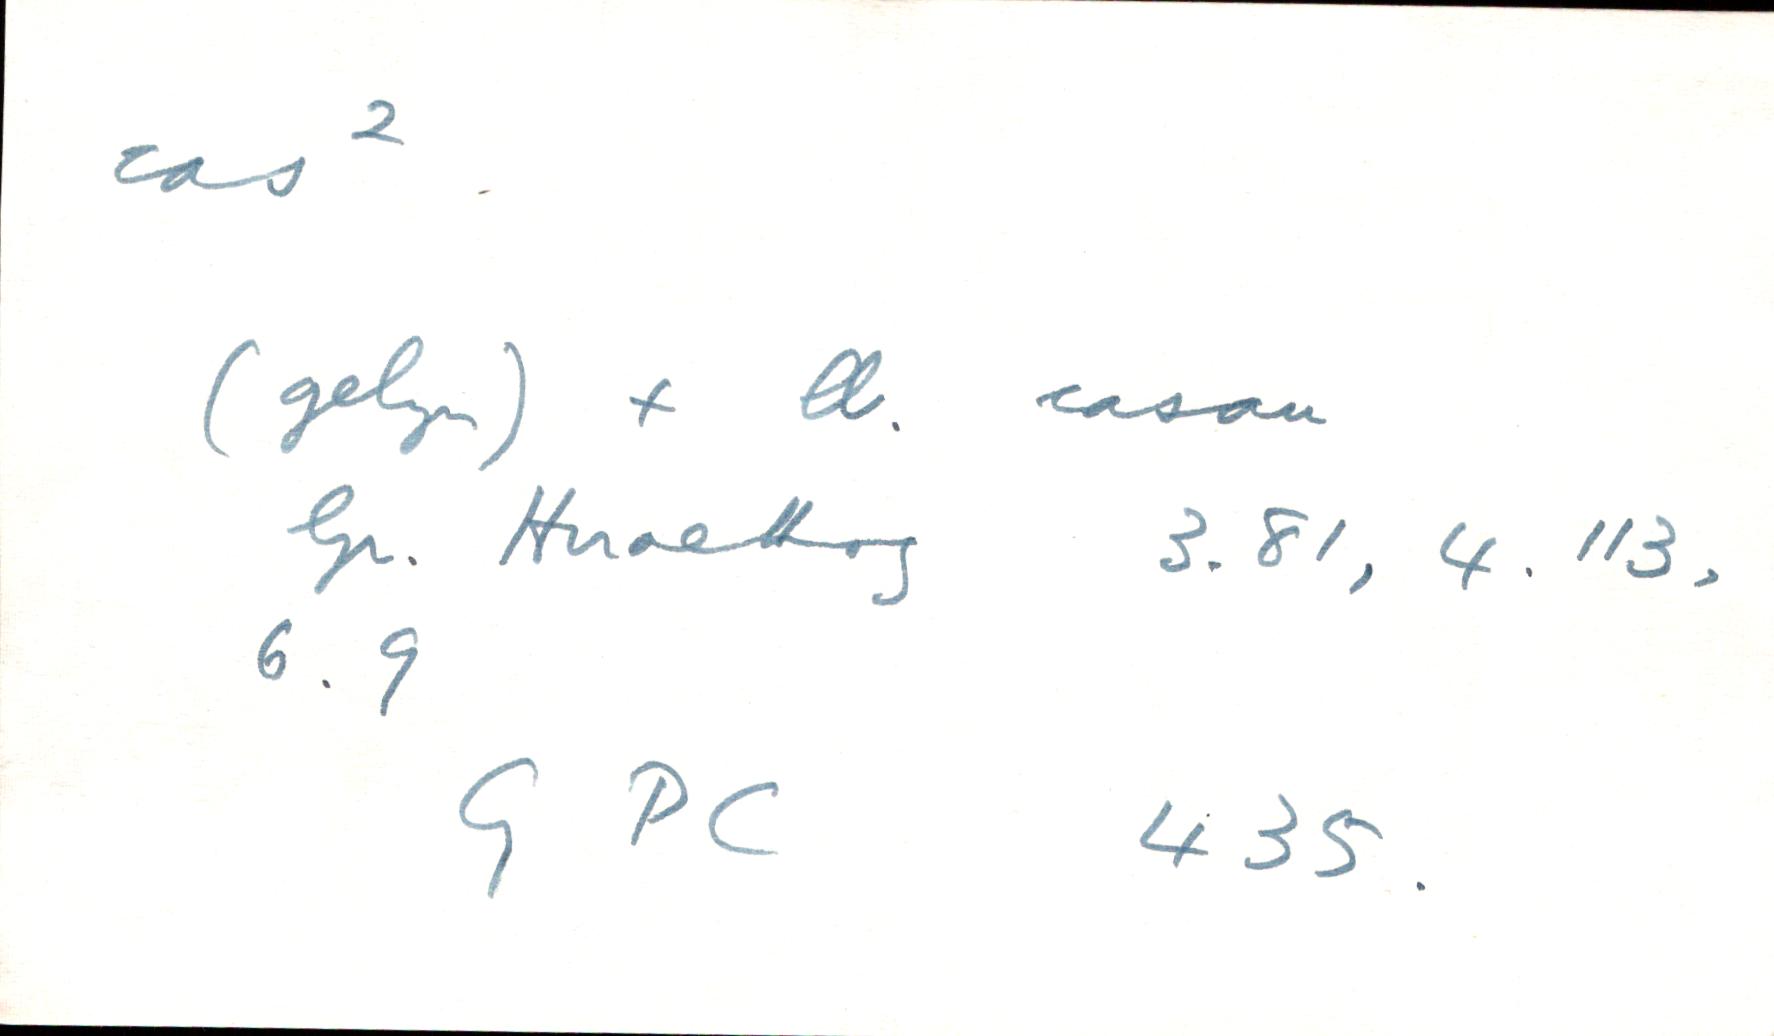 cas²
(gelyn) + ll. casau
Gr. Hiraethog 3.81, 4.113,
6.9
GPC 435.